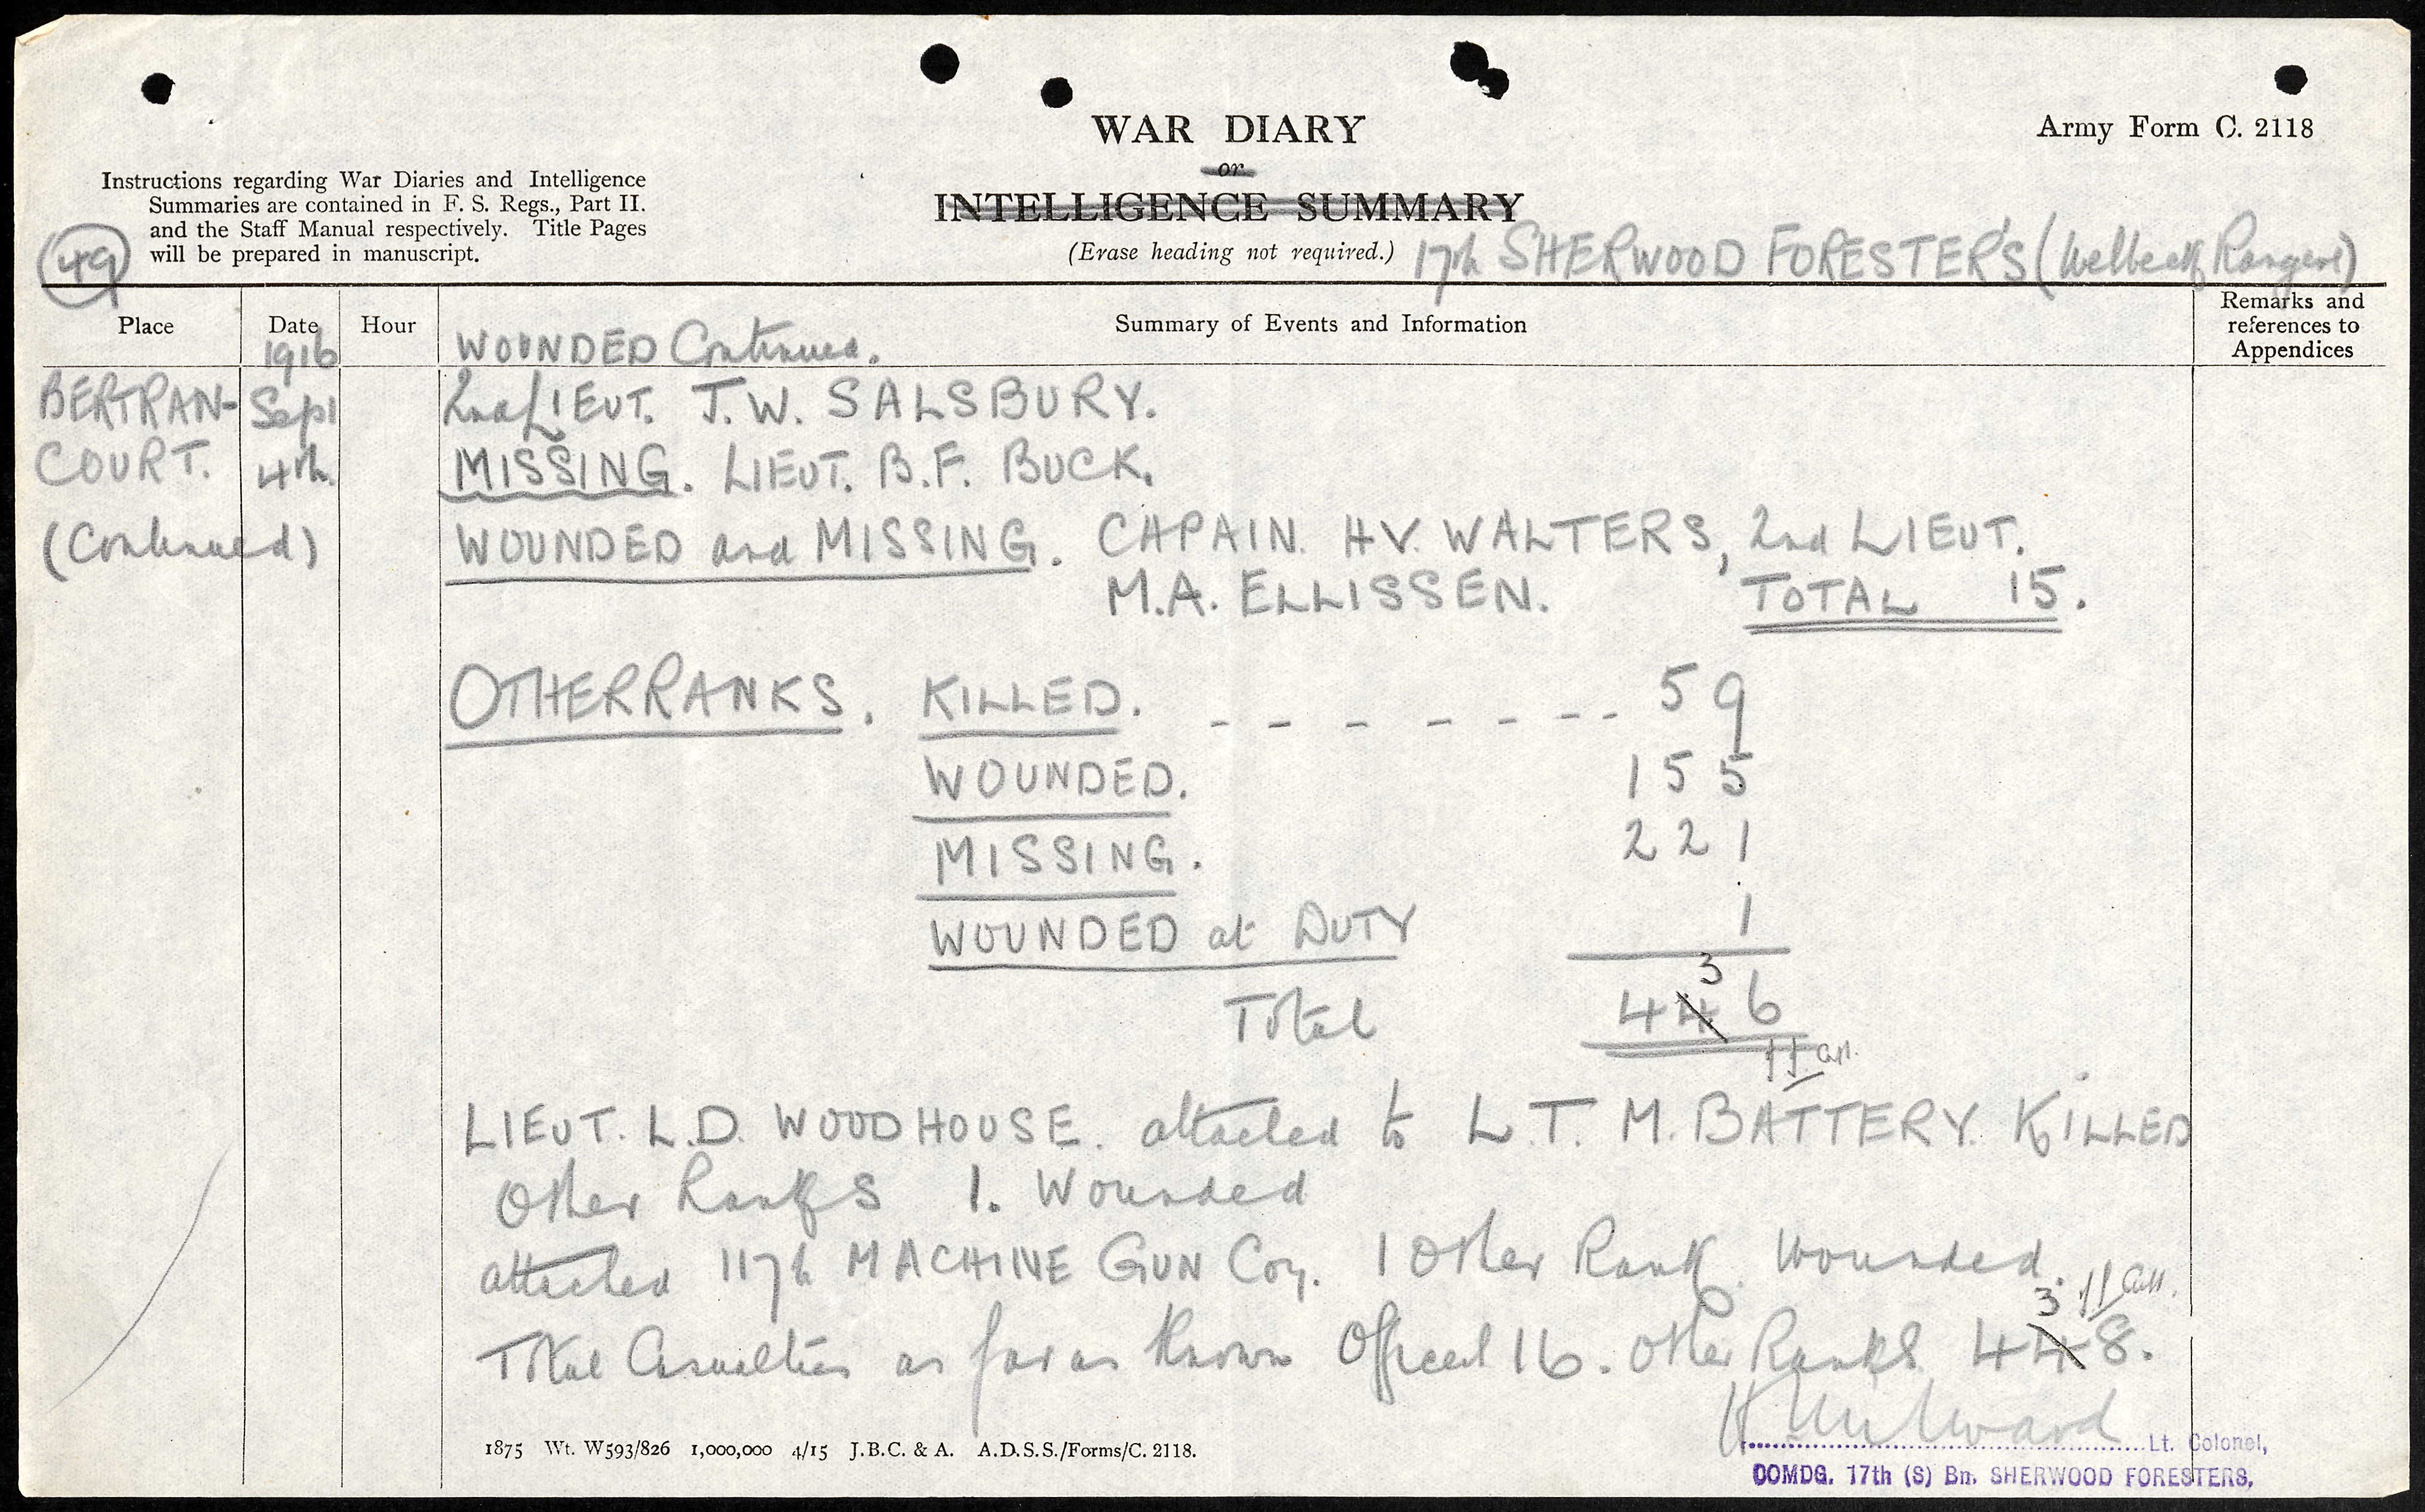 WAR DIARY
or
INTELLIGENCE SUMMARY
(Erase heading not required.)
Army Form C. 2118
Instructions regarding War Diaries and Intelligence
Summaries are contained in F. S. Regs., Part II.
and the Staff Manual respectively. Title Pages
will be prepared in manuscript.
49
17th SHERWOOD FORESTERS (Welbeck Rangers)
Place Date Hour Summary of Events and Information Remarks and references to Appendices
1916 WOUNDED Continued.
BERTRAN- Sept 2nd LIEUT. J.W. SALSBURY.
COURT. 4th. MISSING. LIEUT. B.F. BUCK.
(Continued) WOUNDED and MISSING. CAPAIN. H.V. WALTERS, 2nd LIEUT.
M.A. ELLISSEN. TOTAL 15.
OTHER RANKS. KILLED. - - - - - - - - 59
WOUNDED. 155
MISSING. 221
WOUNDED at DUTY 1
3
Total 446
LIEUT. L.D. WOODHOUSE. attached to L.T.M. BATTERY. KILLED
Other Ranks 1. Wounded
attached 117th MACHINE GUN Coy. 1 Other Rank. Wounded.
3
Total Casualties as far as Known Officers 16. Other Ranks 448.
Lt. Colonel,
COMDG. 17th (S) Bn. SHERWOOD FORESTERS.
1875 Wt. W593/826 1,000,000 4/15 J.B.C. & A. A.D.S.S./Forms/C. 2118.